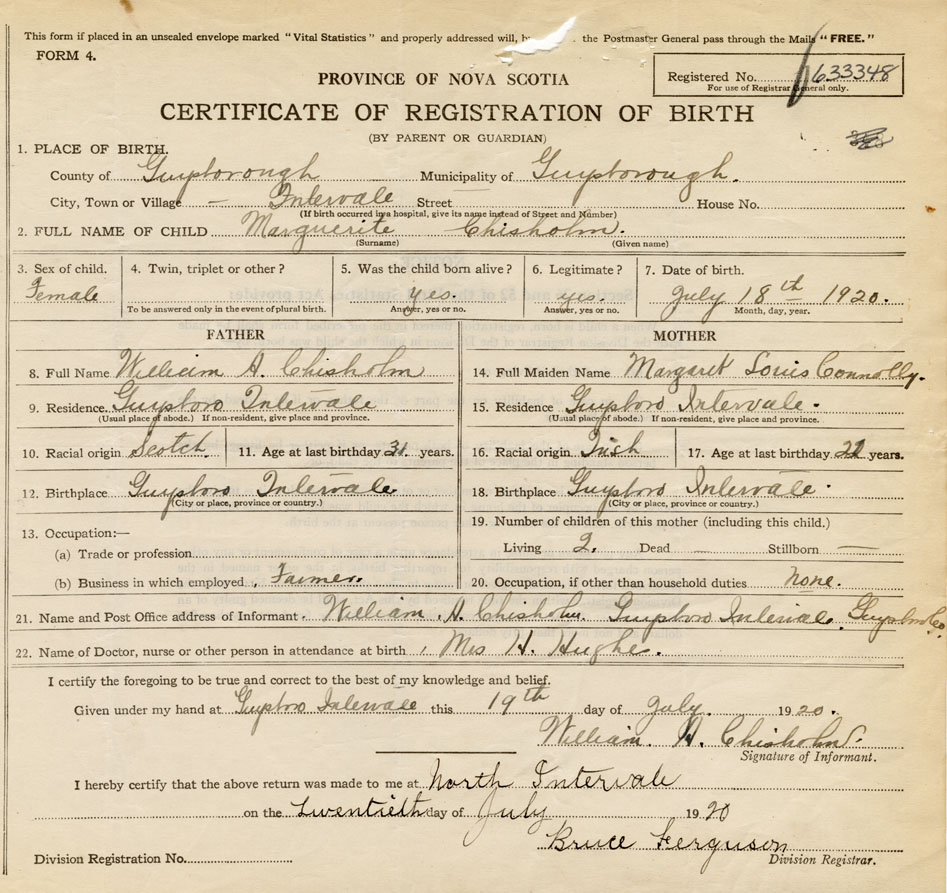 This form if placed in an unsealed envelope marked "Vital Statistics" and properly addressed will, the Postmaster General pass through the Mails "FREE."
FORM 4.
Registered No. 633348
For use of Registrar General only.
PROVINCE OF NOVA SCOTIA
CERTIFICATE OF REGISTRATION OF BIRTH
(BY PARENT OR GUARDIAN)
1. PLACE OF BIRTH.
County of Guysborough Municipality of Guysborough.
City, Town or Village — Intervale Street House No.
(If birth occurred in a hospital, give its name instead of Street and Number)
2. FULL NAME OF CHILD Marguerite Chisholm.
(Surname) (Given name)
3. Sex of child. 4. Twin, triplet or other? 5. Was the child born alive? 6. Legitimate? 7. Date of birth.
Female yes. yes. July 18th 1920.
To be answered only in the event of plural birth. Answer, yes or no. Answer, yes or no. Month, day, year.
FATHER MOTHER
8. Full Name William A. Chisholm 14. Full Maiden Name Margaret Louis Connolly.
9. Residence. Guysboro Intervale 15. Residence Guysboro Intervale.
(Usual place of abode.) If non-resident, give place and province. (Usual place of abode.) If non-resident, give place and province.
10. Racial origin Scotch. 11. Age at last birthday 31. years. 16. Racial origin Irish 17. Age at last birthday years.
12. Birthplace Guysboro Intervale 18. Birthplace Guysboro Intervale.
(City or place, province or country.) (City or place, province or country.)
13. Occupation:— 19. Number of children of this mother (including this child.)
(a) Trade or profession Living 2. Dead — Stillborn —
(b) Business in which employed Farmer. 20. Occupation, if other than household duties none.
21. Name and Post Office address of Informant. William A. Chisholm. Guysboro Intervale. Guysboro Co.
22. Name of Doctor, nurse or other person in attendance at birth Mrs H. Hughes.
I certify the foregoing to be true and correct to the best of my knowledge and belief.
Given under my hand at Guysboro Intervale this 19th day of July. 1920.
William. A. Chisholm.
Signature of Informant.
I hereby certify that the above return was made to me at North Intervale
on the twentieth day of July 1920
Bruce Ferguson
Division Registration No. Division Registrar.